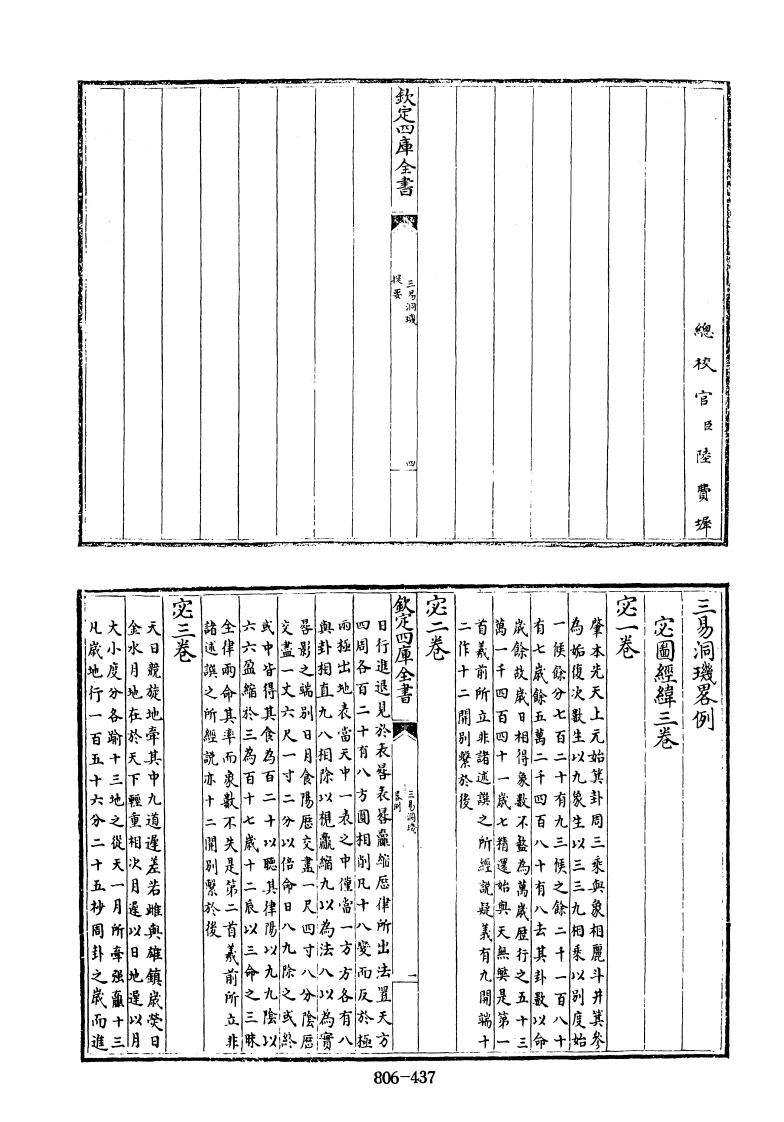 總校官臣陸費墀
欽定四庫全書
三易洞璣
提要
四
三易洞璣畧例
宓圖經緯三卷
宓一卷
肇本先天上元始箕卦周三乘與象相麗斗井箕參
為始復次數生以九象生以三三九相乘以別度始
一候餘分七百二十有九三候之餘二千一百八十
有七歲餘五萬二千四百八十有八去其卦數以命
歲餘故歲日相得象數不盭為萬歲歴行之五十三
萬一千四百四十一歲七精還始與天無獘是第一
首義前所立非諸述誤之所經說疑義有九開端十
二作十二開別繫於後
宓二卷
日行進退見於表晷表晷贏縮厯律所出法置天方
四周各百二十有八方圓相削凡十八變而反於極
兩極出地表當天中一表之中僅當一方方各有八
與卦相直九八相除以視贏縮九以為法八以為實
晷影之端別日月食陽厯交盡一尺四寸八分陰厯
交盡一丈六尺一寸二分以偣命日八九除之或終
或中皆得其食為百二十以聽其律陽以九九陰以
六六盈縮於三為百十七歲十二辰以三命之三昧
全律兩命其率而象數不失是第二首義前所立非
諸述誤之所經説亦十二開別繫於後
宓三卷
天日競旋地牽其中九道遲差若雌與雄鎮歲熒日
金水月地在於天下輕重相次月遲以日地遲以月
大小度分各踰十三地之從天一月所牽强贏十三
凡歲地行一百五十六分二十五秒周卦之歲而進
欽定四庫全書
三易洞璣
畧例
一
806-437